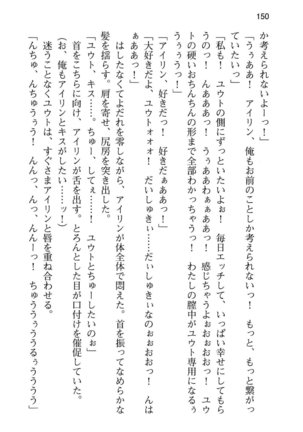 150
か考えられないよーっ！」
「うぁああ！　アイリン、俺もお前のことしか考えられないっ！　もっと、もっと繋がっ
ていたいっ」
「私も！　ユウトの側にずっといたいよぉ！　毎日エッチして、いっぱい幸せにしてもら
うのっ！　んあああっ！　うぁああわぁぁああっ！　感じちゃうよぉおおおっ！　ユウ
トの硬いおちんちんの形まで全部わかっちゃうっ！　わたしの膣中がユウト専用になるぅ
ぅうぅうっ！」
「アイリン、好きだっ！　好きだぁああっ！」
「大好きだよ、ユウトォオォ！　だいしゅきぃ……だぃしゅきぃなのぉおおおっ！　んは
ぁああっ！」
はしたなくてよだれを零しながら、アイリンが体全体で悶えた。首を振ってなめらかな
髪を揺らす。肩を寄せ、尻房を突き出した。
「ユウト、キス……。ちゅー、してぇ……！　ユウトとちゅーしたいのぉ」
首をこちらに向け、アイリンが舌を出す。とろんとした目が口付けを催促していた。
（お、俺もアイリンとキスがしたい……ッ！）
迷うことなくユウトは、すぐさまアイリンと唇を重ね合わせる。
「んちゅ、んちゅうぅう！　んんっ、んっ、んんーっ！　ちゅううぅうううるぅうううう」